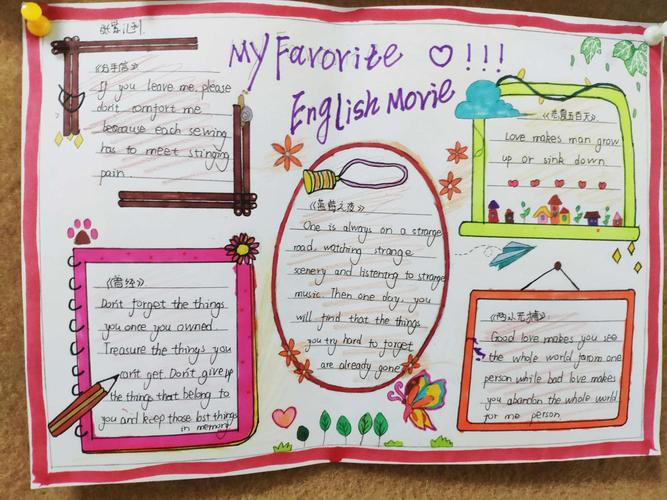 My Favorite ♡!!!
English Movie
《分手信》
If you leave me, please
don't comfort me
because each sewing
has to meet stinging
pain.
《恋夏五百天》
Love makes man grow
up or sink down.
《蓝莓之夜》
One is always on a strange
road, watching strange
scenery and listening to strange
music. Then one day, you
will find that the things
you try hard to forget
are already gone.
《曾经》
Don't forget the things
you once you owned.
Treasure the things you
can't get. Don't give up
the things that belong to
you and keep those lost things
in memory
《两小无猜》
Good love makes you see
the whole world from one
person while bad love makes
you abandon the whole world
for one person.